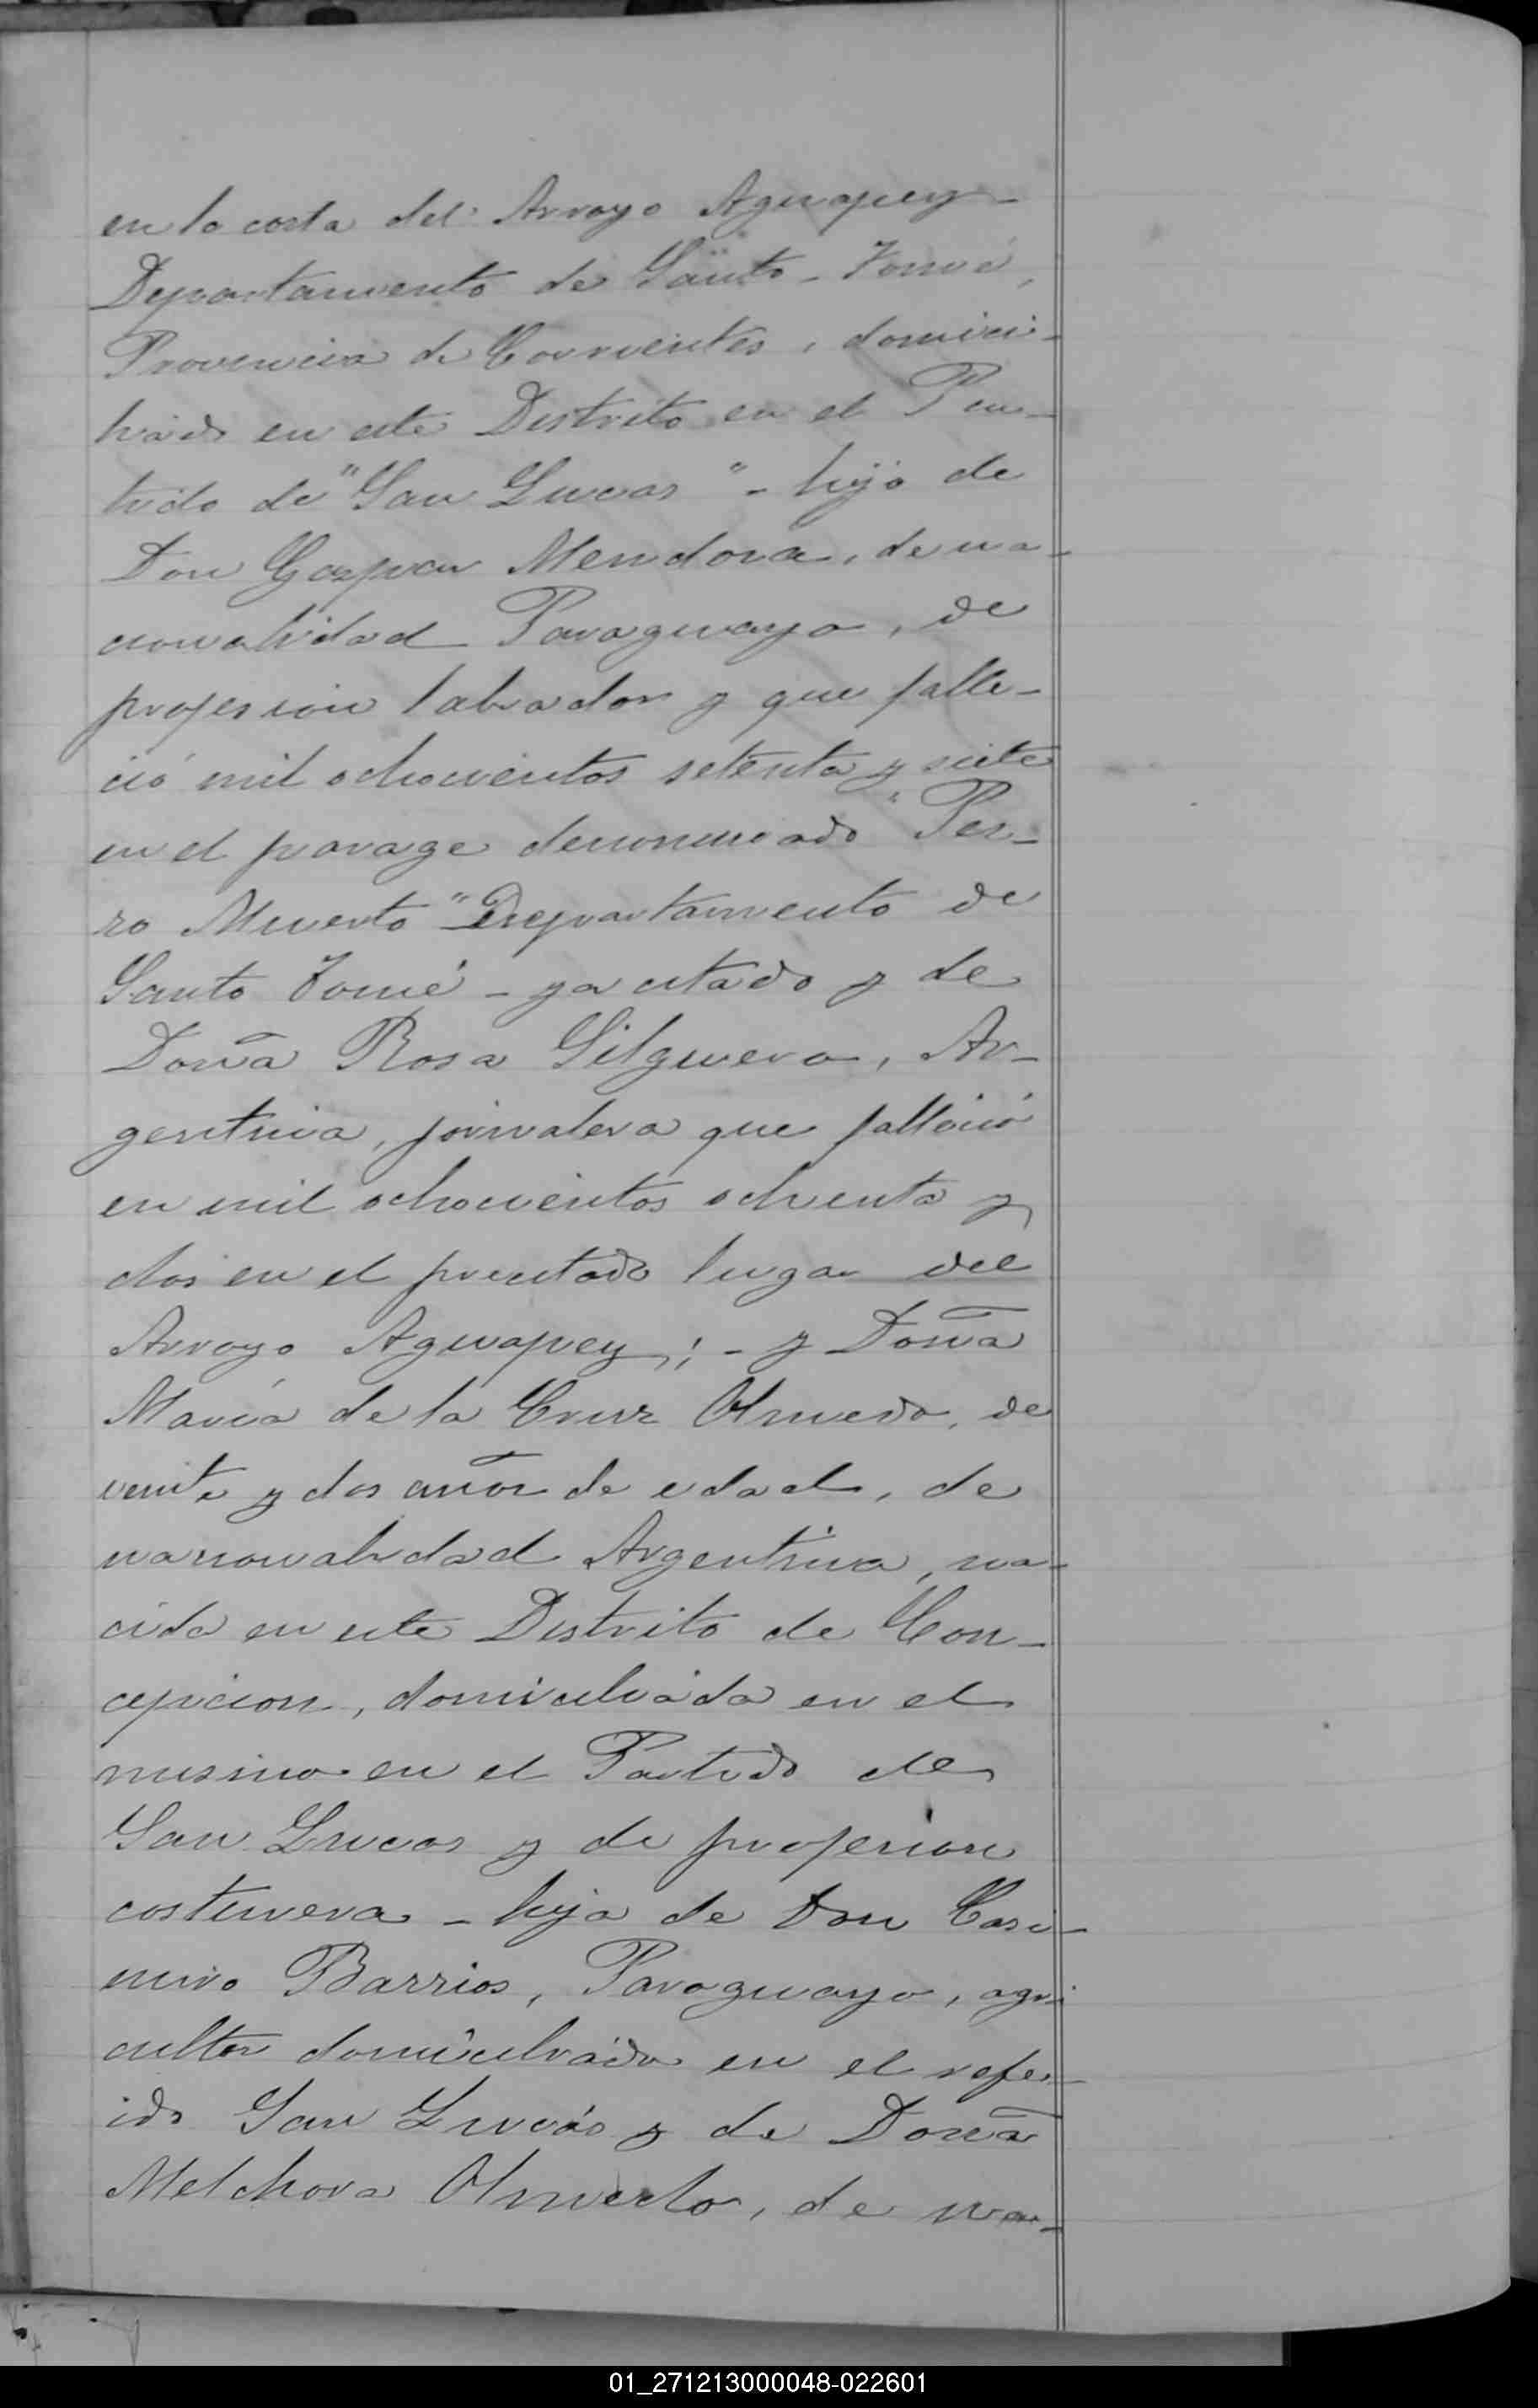 en la costa del Arroyo Aguapey-
Departamento de Santo-Tomé,
Provincia de Corrientes, domici-
liado en este Distrito en el Par-
tido de "San Lucas"- hijo de
Don Gaspar Mendoza, de na-
cionalidad Paraguaya, de
profesion labrador y que falle-
ció mil ochocientos setenta y siete
en el parage denominado "Per-
ro Muerto" Departamento de
Santo Tomé - ya citado y de
Doña Rosa Silguera, Ar-
gentina, jornalera que falleció
en mil ochocientos ochenta y
dos en el precitado lugar del
Arroyo Aguapey; - y Doña
María de la Cruz Olmedo, de
veinte y dos años de edad, de
nacionalidad Argentina, na-
cida en este Distrito de Con-
cepcion, domiciliada en el
mismo en el Partido de
San Lucas y de profesion
costurera - hija de Don Casi-
miro Barrios, Paraguayo, agri
cultor domiciliado en el refe-
ido San Lucas y de Doña
Melchora Olmedo, de na-
01_271213000048-022601